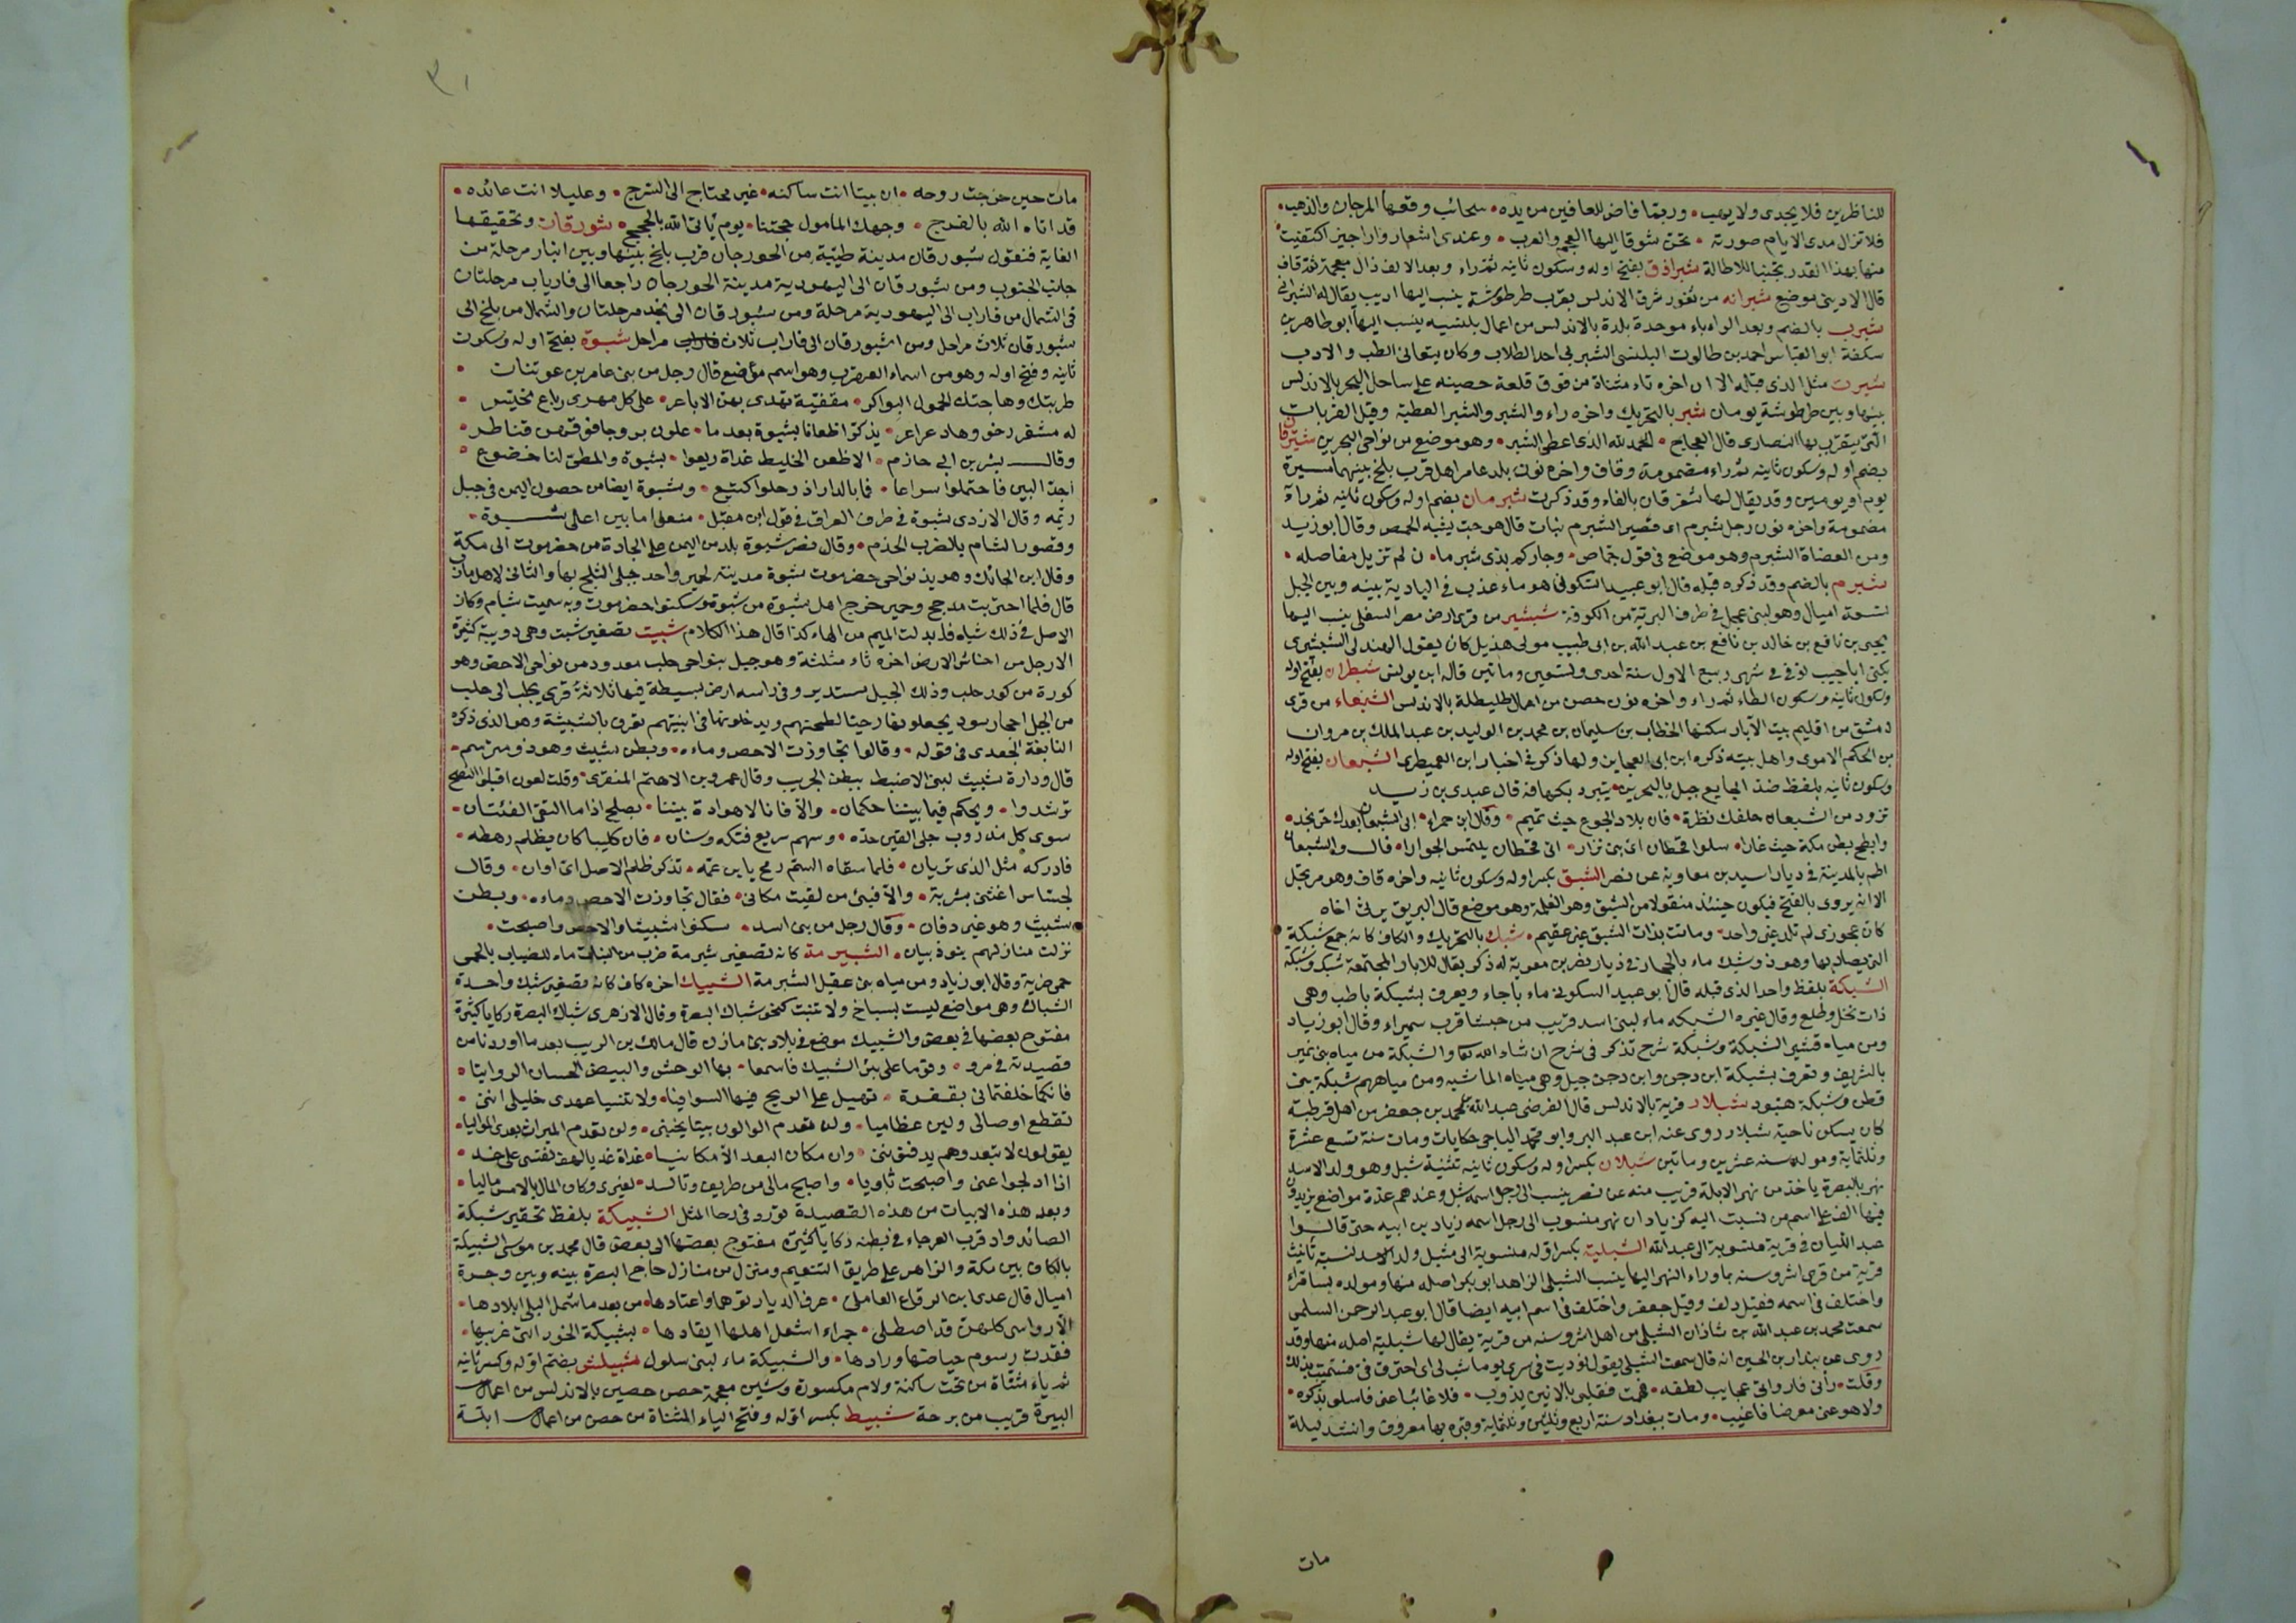 للناظرين فلا يجدى ولا يهب • وربما فاض للعافين من يده • سحائب وقعها المرجان والذهب •
فلا تزال مدى الايام صورته • تحن شوقا اليها العجم والعرب • وعندى اشعار واراجيز اكتفيت
منها بهذا القدر تجنبا للاطالة شبراذق بفتح اوله وسكون ثانيه ثم راء وبعد الالف ذال معجمة ثم قاف
قال الاديبى موضع شبرانه من ثغور شرق الاندلس بقرب طرطوشة ينسب اليها اديب يقال له الشبرانى
شبرب بالضم وبعد الراء باء موحدة بلدة بالاندلس من اعمال بلنسيه ينسب اليها ابو طاهر بن
سلفة ابو العباس احمد بن طالوت البلنسى الشبربى احد الطلاب وكان يتعانى الطب والادب
شبرت مثل الذى قبله الا ان اخره تاء مثناة من فوق قلعة حصينه على ساحل البحر بالاندلس
بينها وبين طرطوشة يومان شبر بالتحريك واخره راء والشبر والشبر العطية وقيل القربات
التى يتقرب بها النصارى قال العجاج • الحمد لله الذى اعطى الشبر • وهو موضع من نواحى البحرين شبرقان
بضم اوله وسكون ثانيه ثم راء مضمومة وقاف واخره نون بلد عامر اهل قرب بلخ بينهما مسيرة
يوم او يومين وقد يقال لها شفرقان بالفاء وقد ذكرت شبرمان بضم اوله وسكون ثانيه ثم راء
مضمومة واخره نون رجل شبرم اى قصير الشبرم نبات قال هو حب يشبه الحمص وقال ابو زيد
ومن العضاة الشبرم وهو موضع فى قول جماص • وجاركم بذى شبرما • ن لم تزيل مفاصله •
شبرم بالضم وقد ذكره قبله قال ابو عبيد السكونى هو ماء عذب فى البادية بينه وبين الجبل
تسعة اميال وهو لبنى عجل فى طرف البرية من الكوفة شبشير من قرى ارض مصر السفلى ينسب اليها
يحيى بن نافع بن خالد بن نافع بن عبد الله بن ابى طبيب مولى هذيل كان يقول الهذلى الشبشيرى
يكنى ابا حبيب توفى فى شهر ربيع الاول سنة احدى وتسعين ومائتين قاله ابن يونس شبطران بفتح اوله
وسكون ثانيه وسكون الطاء ثم راء واخره نون حصن من اعمال طليطلة بالاندلس الشبعاء من قرى
دمشق من اقليم بيت الآبار سكنها الخطاب بن سليمان بن محمد بن الوليد بن عبد الملك بن مروان
بن الحكم الاموى واهل بيته ذكره ابن ابى العجاين ولها ذكر فى اخبار ابن العميطرى الشبعان بفتح اوله
وسكون ثانيه بلفظ ضد الجايع جبل بالبحرين يتبرد بكهافه قال عبدى بن زيد
تزود من الشبعان خلفك نظرة • فان بلاد الجوع حيث تميم • وقال ابن حمراء • ابى الشبعان بعدك حر نجد •
وابطح بطن مكة حيث غارا • سلوا قحطان اى بنى نزار • اتى قحطان يلتمس الجوارا • قال والشبعان
اطم بالمدينة فى ديار اسيد بن معاويه عن نصر الشبق بكسر اوله وسكون ثانيه واخره قاف وهو مرتجل
الا انه يروى بالفتح فيكون حينئذ منقولا من الشبق وهو الغلمة وهو موضع قال البريق يرثى اخاه
كان عجوزى لم تلد غير واحد • وماتت بذات الشبق غير عقيم • شبك بالتحريك والكاف كانه جمع شبكة
التى يصاد بها وهو ذو شبك ماء بالحجاز فى ديار نضر بن معوية له ذكر يقال للآبار المجتمعة شبك وشبكة
الشبكة بلفظ واحد الذى قبله قال ابو عبيد السكونى ماء باجاء ويعرف بشبكة ياطب وهى
ذات نخل وطلع وقال غيره الشبكه ماء لبنى اسد قريب من حبشا قرب سميراء وقال ابو زياد
ومن مياه قشير الشبكة وشبكة شرح تذكر فى شرح ان شاء الله تعا والشبكة من مياه بنى نمير
بالشريف وتعرف بشبكة ابن دجن وابن دجن جبل وهى مياه الماشيه ومن مياههم شبكة بنى
قطن وشبكة هبود شبلار قرية بالاندلس قال الفرضى عبد الله بن محمد بن جعفر من اهل قرطبة
كان يسكن ناحية شبلار روى عنه ابن عبد البر وابو محمد الباجى حكايات ومات سنة تسع عشرة
وثلثماية ومولده سنه عشرين ومائتين شبلان بكسر اوله وسكون ثانيه تثنية شبل وهو ولد الاسد
نهر بالبصرة ياخذ من نهر الابلة قريب منه عن نصر ينسب الى رجل اسمه شبل وعندهم عدة مواضع يزيدون
فيها الف على اسم من نسبت اليه كزيادان نهر منسوب الى رجل اسمه زياد بن ابيه حتى قالوا
عبد اللّيان فى قرية منسوبة الى عبد الله الشبلية بكسر اوله منسوبة الى شبل ولد الاسد نسبة تانيث
قرية من قرى اشروسنه بما وراء النهر اليها ينسب الشبلى الزاهد ابو بكر اصله منها ومولده بسامراء
واختلف فى اسمه فقيل دلف وقيل جعفر واختلف فى اسم ابيه ايضا قال ابو عبد الرحمن السلمى
سمعت محمد بن عبد الله بن شاذان الشبلى من اهل اشروسنه من قرية يقال لها شبلية اصله منها وقد
روى عن بندار بن الحسين انه قال سمعت الشبلى يقول نوديت فى سرى يوما شب لى اى احترق فىّ فسميت بذلك
وقلت • رانى فارانى عجايب لطفه • فهمت فقلبى بالانين يذوب • فلا غائبا عنى فاسلو بذكره •
ولا هو عنى معرضا فاغيب • ومات ببغداد سنة اربع وثلثين وثلثماية وقبره بها معروف وانشد ليلة
مات
٣١
مات حين خرجت روحه • ان بيتا انت ساكنه • غير محتاج الى السرج • وعليلا انت عائده •
قد اتاه الله بالفرج • وجهك المامول حجتنا • يوم ياتى الله بالحجج • شورقان وتحقيقها
الغاية فنقول شبورقان مدينة طيّبة من الجوزجان قرب بلخ بينها وبين انبار مرحلة من
جانب الجنوب ومن شبورقان الى اليهودية مدينة الجوزجان راجعا الى فارياب مرحلتان
فى الشمال من فاراب الى اليهودية مرحلة ومن شبورقان الى انخذ مرحلتان والشمال من بلخ الى
شبورقان ثلاث مراحل ومن اشبورقان الى فاراب ثلاث مراحل شبوة بفتح اوله وسكون
ثانيه وفتح اوله وهو من اسماء العقرب وهو اسم مواضع قال رجل من بنى عامر بن عوثبات •
طربتك وهاجتك الحمول البواكر • مقفيّة تهدى بهن الاباعر • على كل مهرى رباع مخيس •
له مشفر رخو وهاد عراعر • يذكر اظعانا بشبوة بعد ما • علون بروجا فوقهن قناطر •
وقال بشر بن ابى حازم • الا ظعن الخليط غداة ريعوا • بشبوة والمطىّ لنا خضوع •
اجدّ البين فاحتملوا سراعا • فما بالدار اذ رحلوا كتيع • وشبوة ايضا من حصون اليمن فى جبل
ريمه وقال الازدى شبوة فى طرف العراق فى قول ابن مقبل • منعوا ما بين اعلى شبوة •
وقصور الشام بالضرب الخذم • وقال نصر شبوة بلد من اليمن على الجادة من حضرموت الى مكة
وقال ابن الحائك وهو يذ نواحى حضرموت شبوة مدينة لحمير واحد جبلى الثلج بها والثانى لاهل مارب
قال فلما احتربت مذحج وحمير خرج اهل شبوة من شبوة فسكنوا حضرموت وبه سميت شبام وكان
الاصل فى ذلك شباه فابدلت الميم من الهاء كذا قال هذا الكلام شبيث تصغير شبث وهى دويبة كثيرة
الارجل من احناش الارض اخره ثاء مثلثة وهو جبل بنواحى حلب معدود من نواحى الاحص وهو
كورة من كور حلب وذلك الجبل مستدير وفى راسه ارض بسيطة فيها ثلاثة قرى يجلب الى حلب
من الجبل احجار سود يجعلونها رحيا لطحنهم ويدخلونها فى ابنيتهم تعرف بالشبيثية وهو الذى ذكره
النابغة الجعدى فى قوله • وقالوا تجاوزت الاحص وماءه • وبطن شبيث وهو ذو مترسم •
قال ودارة شبيث لبنى الاضبط ببطن الجريب وقال عمرو بن الاهتم المنقرى • وقلت لعون اقبلوا النصح
ترشدوا • ويحكم فيما بيننا حكمان • والا فانا لا هوادة بيننا • بصلح اذا ما التقى الفئتان •
سوى كل مذروب جلى القين حده • وسهم سريع فتكه وسنان • فان كليبا كان يظلم رهطه •
فادركه مثل الذى تريان • فلما سقاه السم رمح يا ابن عمه • تذكر ظلم الاصل اى اوان • وقال
لجساس اغثنى بشربة • والا فنبئ من لقيت مكانى • فقال تجاوزت الاحص وماءه • وبطن
شبيث وهو غير دفان • وقال رجل من بنى اسد • سكنوا شبيثا والاحص واصبحت •
نزلت منازلهم بنو ذبيان • الشبيرمة كانه تصغير شبرمة ضرب من النبات ماء للضباب بالحمى
حمى ضرية وقال ابو زياد ومن مياه بنى عقيل الشبرمة الشبيك اخره كاف كانه تصغير شبك واحدة
الشباك وهى مواضع ليست بسباخ ولا تنبت كنحو شباك البصرة وقال الازهرى شباك البصرة ركايا كثيرة
مفتوح بعضها فى بعض والشبيك موضع فى بلاد بنى مازن قال مالك بن الريب بعد ما اوردنا من
قصيدته فى مرو • وقوما على بئر الشبيك فاسمعا • بها الوحش والبيض الحسان الروانيا •
فانكما خلفتمانى بقفرة • تهيل على الريح فيها السوافيا • ولا تنسيا عهدى خليلى اننى •
تقطع اوصالى وتبلى عظاميا • ولن تعدم الوالون بيتا يجننى • ولن تعدم الميراث بعدى المواليا •
يقولون لا تبعد وهم يدفنوننى • واين مكان البعد الا مكانيا • غداة غد يا لهف نفسى على غد •
اذا ادلجوا عنى واصبحت ثاويا • واصبح مالى من طريف وتالد • لغيرى وكان المال بالامس ماليا •
وبعد هذه الابيات من هذه القصيدة نورد فى رحا المثل الشبيكة بلفظ تحقير شبكة
الصائد واد قرب العرجاء فى بطنه ركايا كثيرة مفتوح بعضها الى بعض قال محمد بن موسى الشبيكة
بالكاف بين مكة والزاهر على طريق التنعيم ومنزل من منازل حاج البصرة بينه وبين وجرة
اميال قال عدى ابن الرقاع العاملى • عرف الديار توهما واعتادها • من بعد ما شمل البلى ابلادها •
الا رواسى كلهن قد اصطلى • جمراء اشعل اهلها ايقادها • بشبيكة الحور التى غربيها •
فقدت رسوم حياضها ورادها • والشبيكة ماء لبنى سلول شبيلش بضم اوله وكسر ثانيه
ثم ياء مثناة من تحت ساكنة ولام مكسورة وشين معجمة حصن حصين بالاندلس من اعمال
البيرة قريب من برجة شبيط بكسر اوله وفتح الياء المثناة من حصن من اعمال ابلة